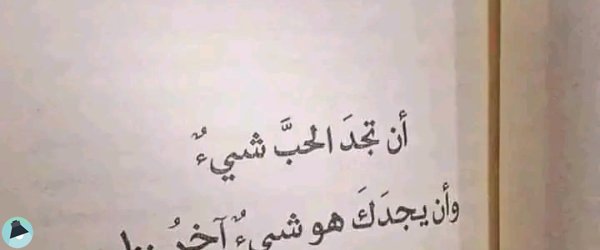 أن تجدَ الحبَّ شيءٌ
وأن يجدَكَ هو شيءٌ آخرُ